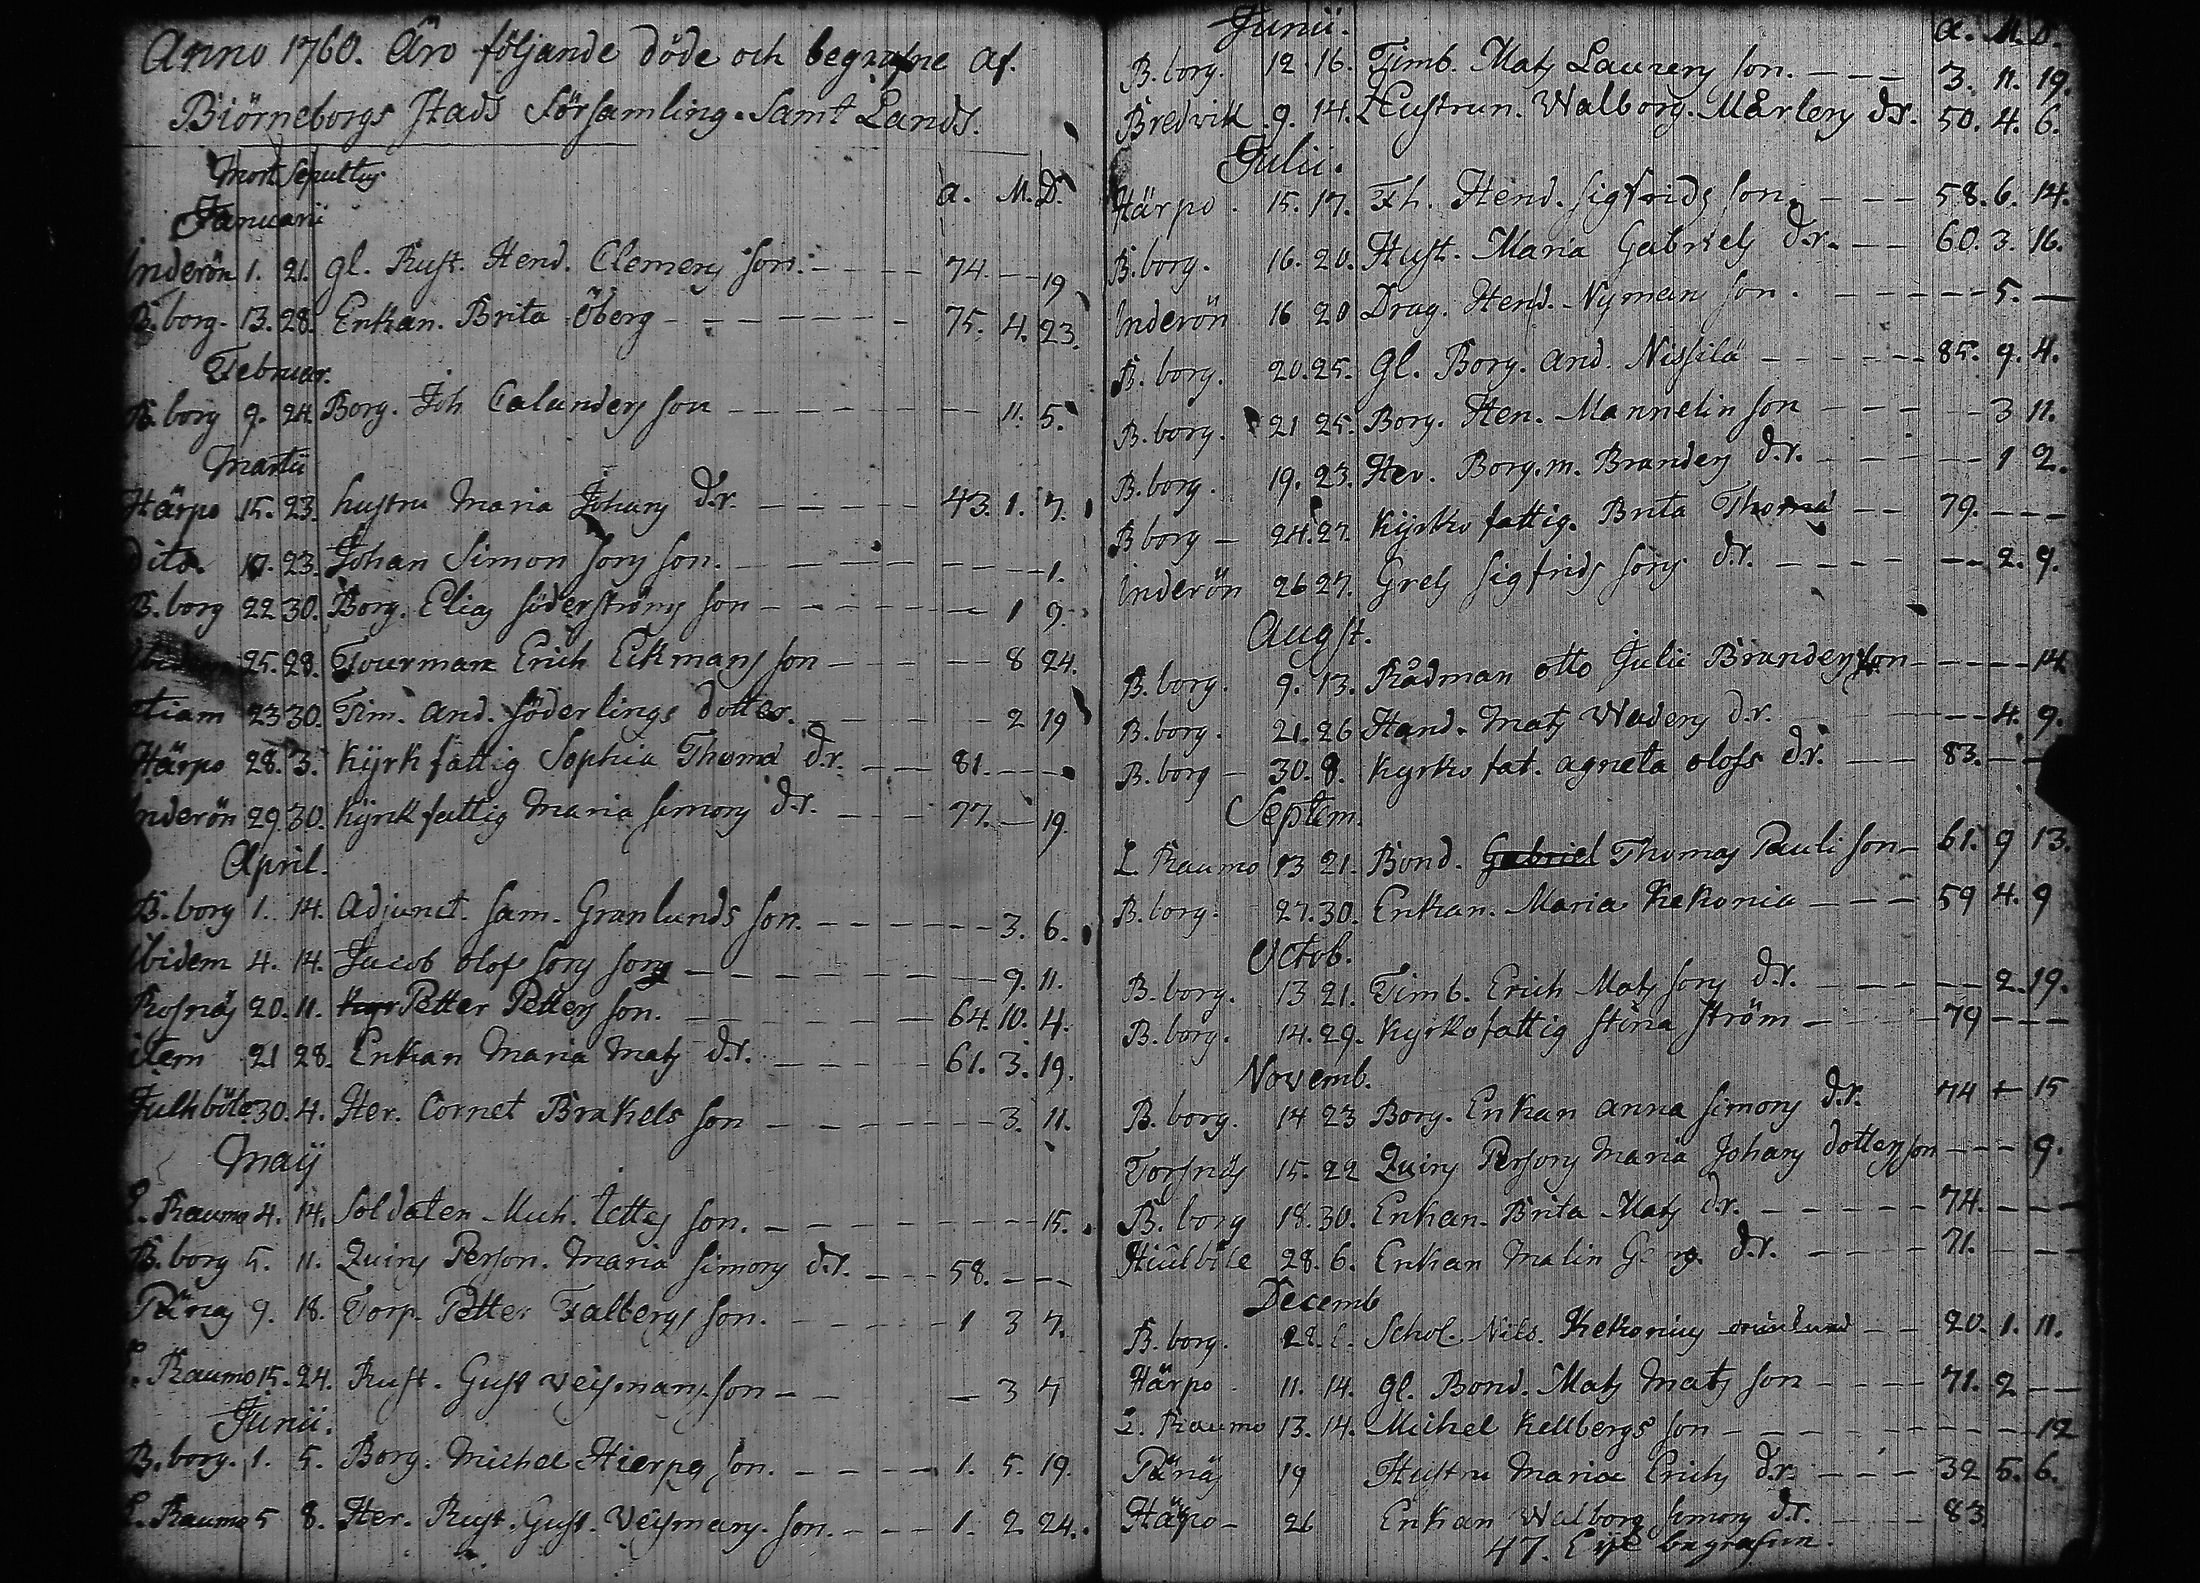 Anno 1760. Äro följande döde och begrafne af.
Biörneborgs stads Församling. Samt Lands.
Mort Sepultus
a. M. D.
Januarii
Inderön 1. 21. gl. Rust. Hend. Clemens son. 74. — 19
B. borg. 13. 28. Enkan. Brita Öberg 75. 4. 23.
Februar.
B. borg 9. 24. Borg. Joh Calanders son 11. 5.
Martii
Härpo 15. 23. hustru Maria Johans d.r. 43. 1. 7.
dito. 17. 23. Johan Simon sons son. 1.
B. borg 22 30. Borg. Elias Söderströms son 1 9.
25. 28. Tourman Erich Eckmans son 8 24.
etiam 23 30. Tim. And. Söderlings dotter. 2 19
Härpo 28. 3. Kyrk fattig Sophia Thoma d.r. 81.
Inderön 29. 30. Kyrk fattig Maria Simons d.r. 77. — 19.
April.
B. borg 1. 14. Adjunct. Sam. Granlunds son. 3. 6.
Ibidem 4. 14. Jacob Olofs sons son 9. 11.
Rosnäs 20. 11. Petter Petters son. 64. 10. 4.
item 21 28. Enkan Maria Mats d.r. 61. 3. 19.
30. 4. Her. Cornet Brakels son 3. 11.
Maij
L. Raumo 4. 14. Soldaten Mich. Tettes son. 15.
B. borg 5. 11. Quins Person. Maria Simons d.r. 58.
Pänäs 9. 18. Torp. Petter Falbergs son. 1 3 7.
L. Raumo 15. 24. Rust. Gust Veismans son 3 7
Junii.
B. borg. 1. 5. Borg. Michel Hierpes son. 1. 5. 19.
L. Raumo 5 8. Her. Rust. Gust. Veismans. son. 1. 2 24.
Junii.
a. M. D.
B. borg. 12. 16. Timb. Mats Laurens son. 3. 11. 19.
Bredvik 9. 14. Hustrun. Walborg. Mårtens d.r. 50. 4. 6.
Julii.
Härpo 15. 17. Fh. Hend. Sigfrids son. 58. 6. 14.
B. borg. 16. 20. Hust. Maria Gabriels d.r. 60. 3. 16.
Inderön 16 20 Drag. Hend. Nymans son. 5. —
B. borg. 20. 25. Gl. Borg. And. Nissilä 85. 9. 4.
B. borg. 21 25. Borg. Hen. Mannelin son 3 11.
B. borg. 19. 23. Her. Borg. m. Branders d.r. 1 2.
B. borg — 24. 27. Kyrko fattig. Brita Thoma 79.
Inderön 26 27. Grels Sigfrids sons d.r. 2. 9.
Augst.
B. borg. 9. 13. Rådman Otto Julii Branders son 14
B. borg. 21. 26 Hand. Mats Waders d.r. 4. 9.
B. borg — 30. 8. Kyrko fat. Agneta Olofs d.r. 83.
Septem.
L. Raumo 13 21. Bond. Gabriel Thomas Pauli son 61. 9 13.
B. borg. 27. 30. Enkan. Maria Kekonia 59 4. 9
Octob.
B. borg. 13 21. Timb. Erich Mats sons d.r. 2. 19.
B. borg. 14. 29. Kyrkofattig Stina Ström 79
Novemb.
B. borg. 14 23 Borg. Enkan Anna Simons d.r. 74 + 15
Torsnäs 15. 22 Quins Persons Maria Johans dotters son 9.
B. borg 18. 30. Enkan. Brita Mats d.r. 74.
Hiulböle 28. 6. Enkan Malin d.r. 71.
Decemb
B. borg. Schol. Nils. Kekonius 20. 1. 11.
Härpo 11. 14. gl. Bond. Mats Mats son 71. 2
L. Raumo 13. 14. Michel Kellbergs son 12
Pänäs 19 Hustru Maria Erichs d.r. 32 5. 6.
Häpo — 26 Enkan Walborg Simons d.r. 83
47. begrafven.